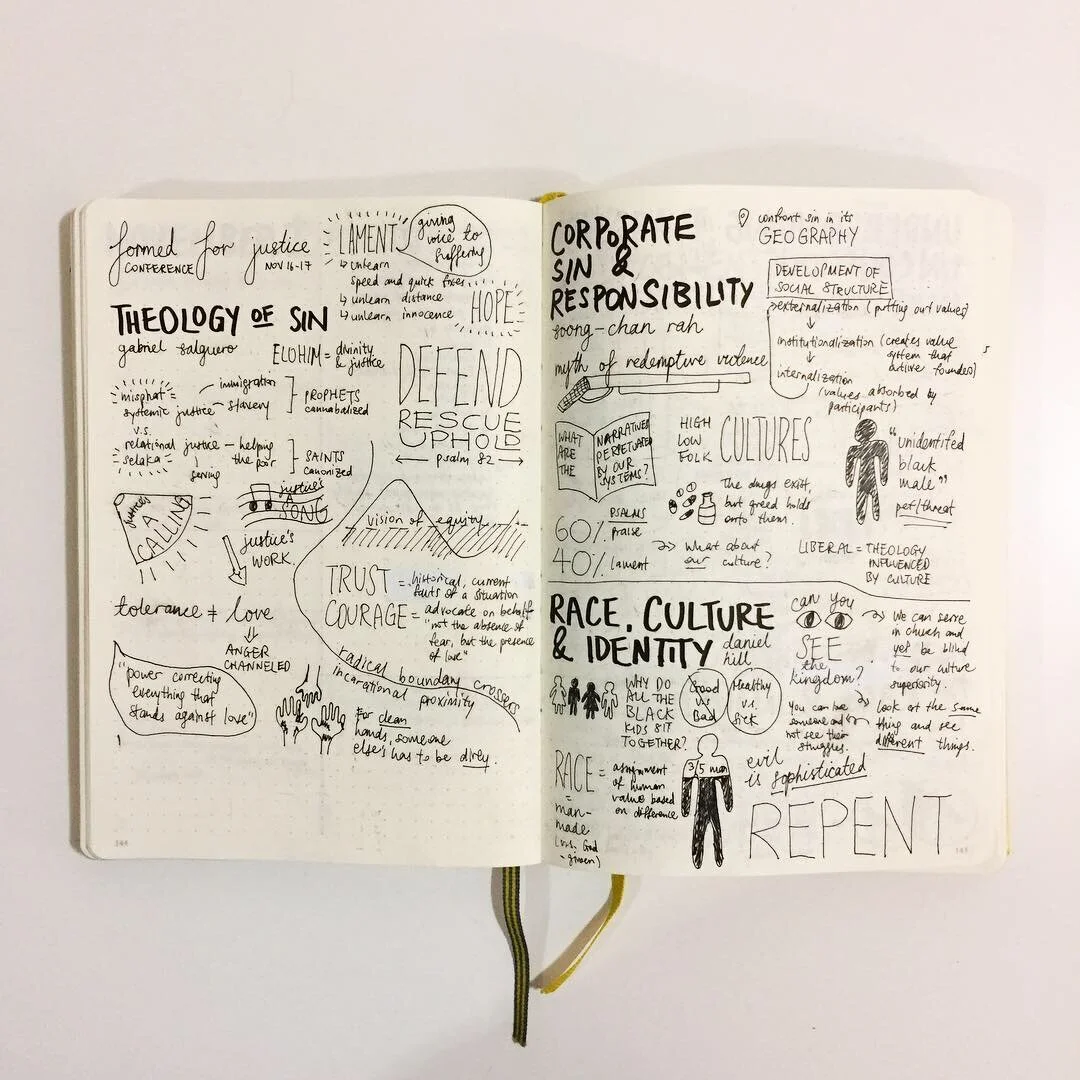 formed for justice
CONFERENCE NOV 16-17
THEOLOGY OF SIN
gabriel salguero
misphat
systemic justice
immigration
slavery
PROPHETS
cannabalized
v.s.
relational justice
selaka
helping
the poor
serving
SAINTS
canonized
ELOHIM = divinity
& justice
LAMENT
giving
voice to
suffering
↳ unlearn
speed and quick fixes
↳ unlearn distance
↳ unlearn innocence
HOPE
DEFEND
RESCUE
UPHOLD
psalm 82
justice's
A
CALLING
justice's
A
SONG
justice's
WORK
vision of equity
TRUST = historical, current
faults of a situation
COURAGE = advocate on behalf
"not the absence of
fear, but the presence
of love"
radical boundary crossers
incarational proximity
tolerance ≠ love
ANGER
CHANNELED
"power correcting
everything that
stands against love"
For clean
hands, someone
else's has to be dirty.
144
CORPORATE
SIN &
RESPONSIBILITY
soong-chan rah
confront sin in its
GEOGRAPHY
DEVELOPMENT OF
SOCIAL STRUCTURE
externalization (putting out values)
institutionalization (creates value
system that
outlive founders)
internalization
(values absorbed by
participants)
myth of redemptive violence
WHAT
ARE
THE
NARRATIVES
PERPETUATED
BY OUR
SYSTEMS?
HIGH
LOW
FOLK
CULTURES
The drugs exist,
but greed holds
onto them.
"unidentifed
black
male"
pet/threat
60% PSALMS
praise
40% lament
What about
our culture?
LIBERAL = THEOLOGY
INFLUENCED
BY CULTURE
RACE, CULTURE
& IDENTITY
daniel
hill
WHY DO
ALL THE
BLACK
KIDS SIT
TOGETHER?
Good
vs
Bad
Healthy
v.s.
Sick
can you
SEE
the
kingdom?
We can serve
in church and
yet be blind
to our culture
superiority.
You can love
someone and
not see their
struggles.
look at the same
thing and see
different things.
RACE = assignment
of human
value based
on difference
=
man-
made
(v.s. God
-given)
3/5 man
evil
is sophisticated
REPENT
145